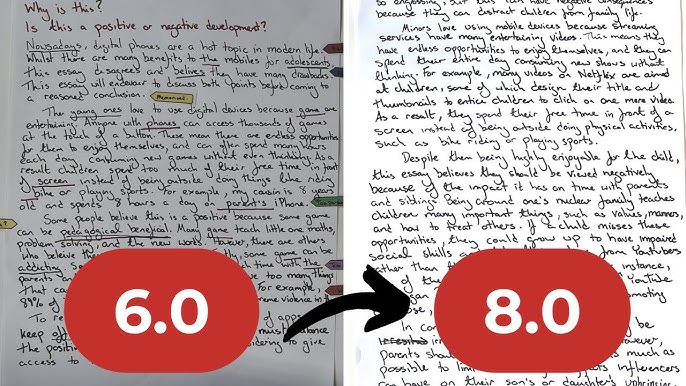 Why is this?
Is this a positive or negative development?
Nowadays, digital phones are a hot topic in modern life.
Whilst there are many benefits to the mobiles for adolescents,
this essay disagrees and belives they have many drawbacks
This essay will endeavour to discuss both points before coming to
a reasoned conclusion. Memorised
The young ones love to use digital devices because game are
entertain Anyone with phones can access thousands of games
at the touch of a button. These mean there are endless opportunities
for them to enjoy themselves, and can often spend many hours
each day consuming new games without even thinking. As a
result children spend too much of their free time in front
of screen instead of being outside doing things like riding
bike or playing sports. For example, my causin is 8 year
old and spends 8 hours a day on parent's iPhone.
Some people believe this is a positive because some game
can be pedagogical benefical. Many game teach little one maths,
problem solving, and the new words. However, there are others
who believe they some game can be
addicting time with the
parents too many things
That ca For example,
89% of treme violence in th
To re of apps
keep off must balance
the positiv idering to give
access to
6.0
so engrossing, but this can have negative consequences
because they can distract children from family life.
Minors love using mobile devices because streaming
services have many entertaining videos. This means they
have endless opportunities to enjoy themselves, and they can
spend their entire day consuming new shows without
thinking. For example, many videos on Netflex are aimed
at children, some of which design their title and
thumbnails to entice children to click on one more video.
As a result, they spend their free time in front of a
screen instead of being outside doing physical activities,
such as bike riding or playing sports.
Despite them being highly enjoyable for the child,
this essay believes they should be viewed negatively
because of the impact it has on time with parents
and siblings. Being around one's nuclear family teaches
children many important things, such as values, manners,
and how to treat others. If a child misses these
opportunities, they could grow up to have impaired
social skills from Youtubers
rather than instance,
of the YouTube
gan moting
In con be
however,
parents shou much as
possible to limi influencers
can have on their son's or daughter's
8.0